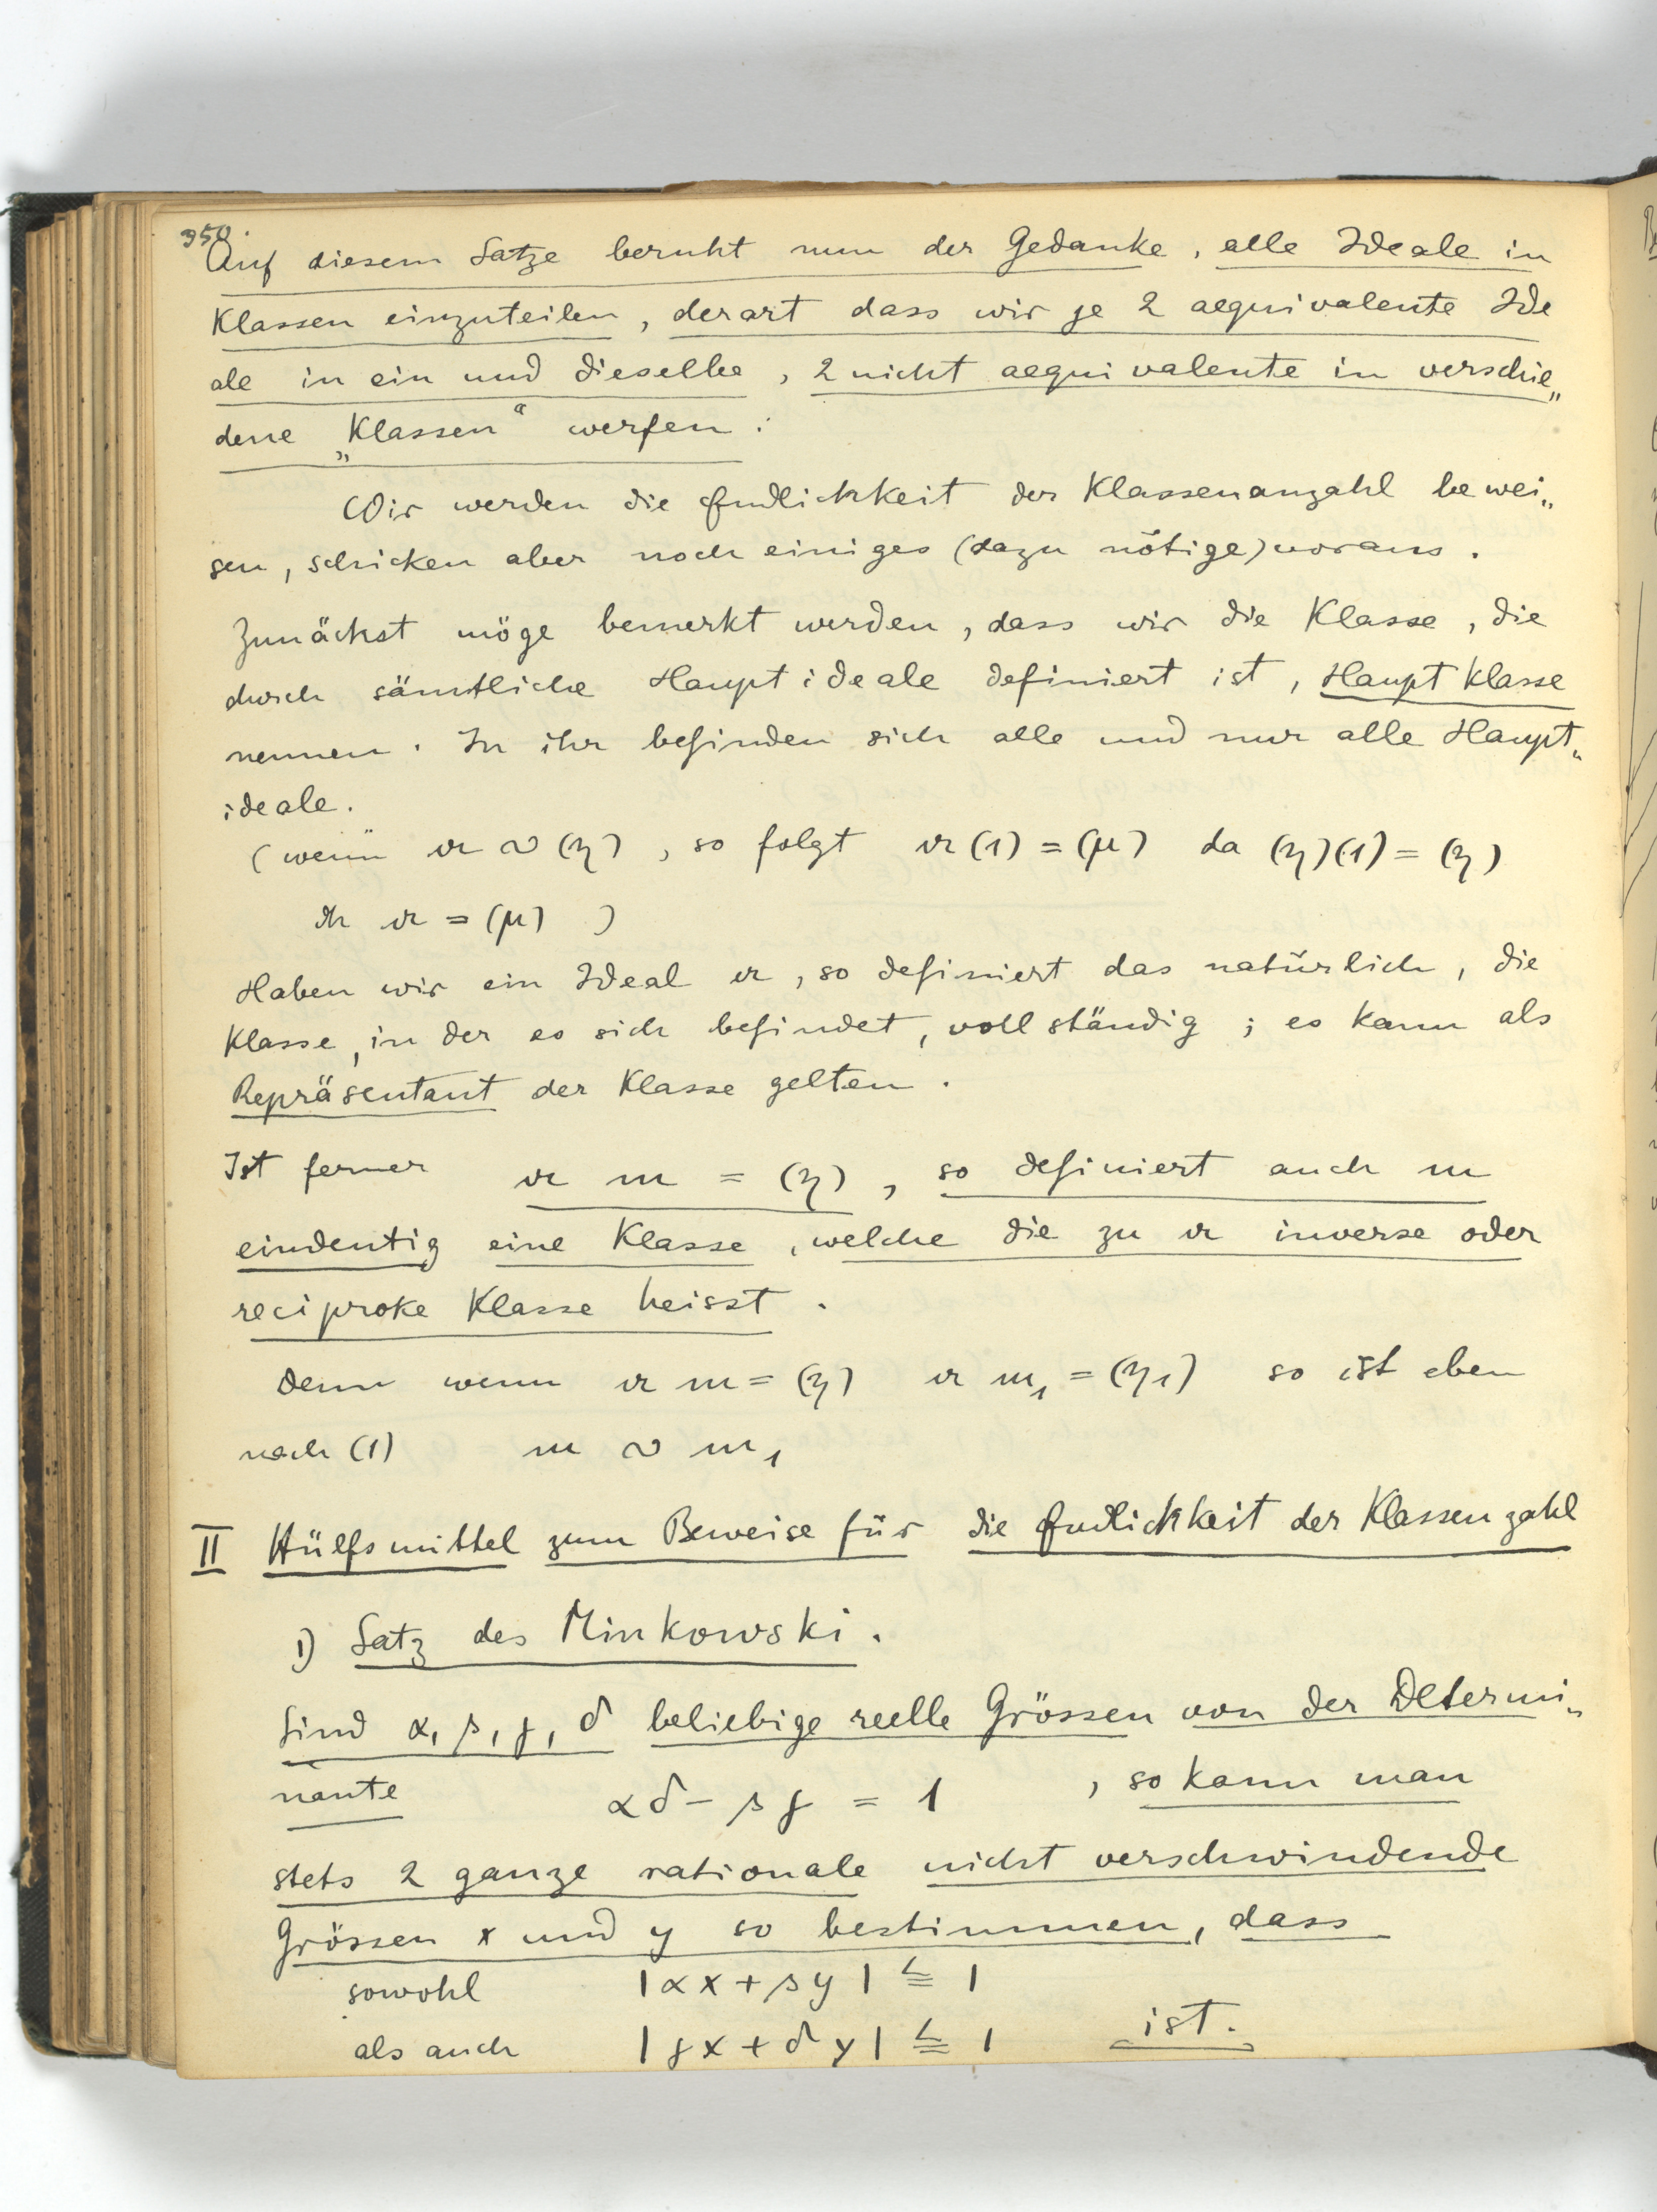 350.
Auf diesem Satze beruht nun der Gedanke, alle Ideale in
Klassen einzuteilen, derart dass wir je 2 aequivalente Ide
ale in ein und dieselbe, 2 nicht aequivalente in verschie„
dene „Klassen“ werfen:
Wir werden die Endlichkeit der Klassenanzahl bewei„
sen, schicken aber noch einiges (dazu nötige) voraus.
Zunächst möge bemerkt werden, dass wir die Klasse, die
durch sämtliche Hauptideale definiert ist, Hauptklasse
nennen. In ihr befinden sich alle und nur alle Haupt„
ideale.
(wenn 𝔞 ∾ (η), so folgt 𝔞(1) = (μ) da (η)(1) = (η)
dh 𝔞 = (μ) )
Haben wir ein Ideal 𝔞, so definiert das natürlich, die
Klasse, in der es sich befindet, vollständig; es kann als
Repräsentant der Klasse gelten.
Ist ferner 𝔞 m = (η), so definiert auch m
eindeutig eine Klasse, welche die zu 𝔞 inverse oder
reciproke Klasse heisst.
denn wenn 𝔞 m = (η) 𝔞 m₁ = (η₁) so ist eben
nach (1) m ∾ m₁
II Hülfsmittel zum Beweise für die Endlichkeit der Klassenzahl
1) Satz des Minkowski.
Sind α, β, γ, δ beliebige reelle Grössen von der Determi„
nante αδ - βγ = 1, so kann man
stets 2 ganze rationale nicht verschwindende
Grössen x und y so bestimmen, dass
sowohl |αx + βy| ≦ 1
als auch |γx + δy| ≦ 1 ist.